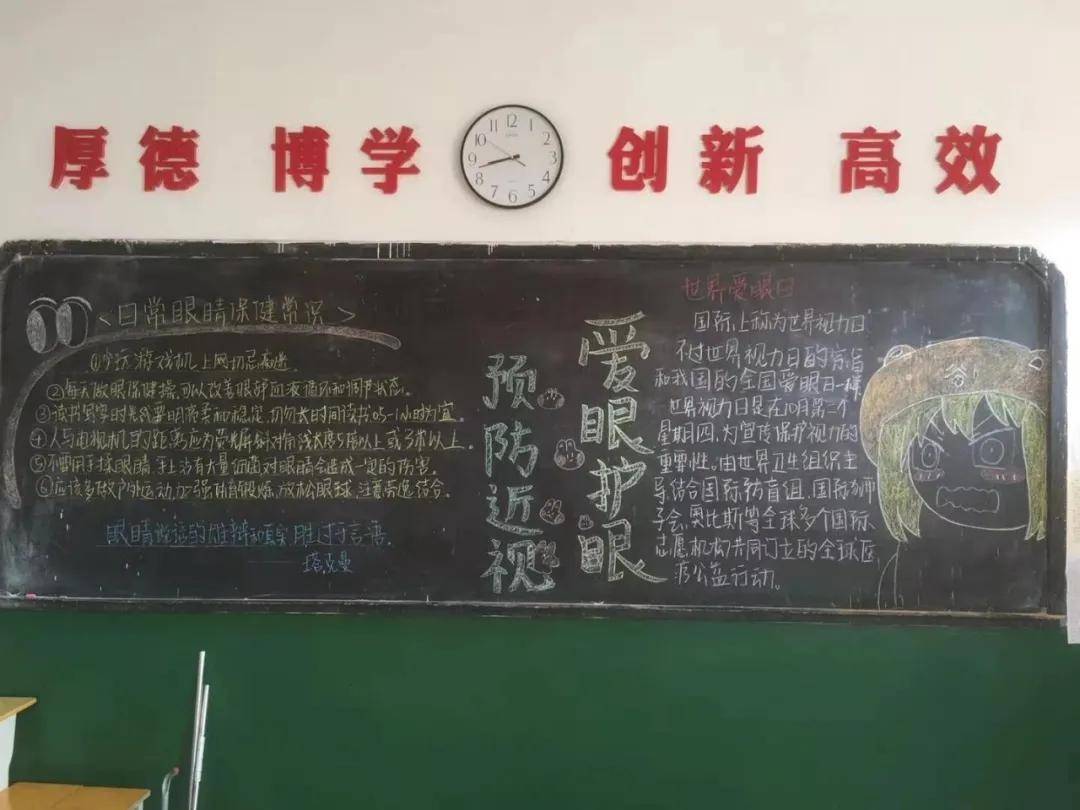 厚德 博学 创新 高效
12 1 2 3 4 5 6 7 8 9 10 11
<日常眼睛保健常识>
①少玩游戏机上网切忌
②每天做眼保健操,可以改善眼部血液循环和调节状态。
③读书写字时光线要明亮柔和稳定,切勿长时间读书 0.5-1小时为宜
④人与电视机的距离应为荧光屏对角线长度5倍以上或3米以上。
⑤不要用手揉眼睛,手上沾有大量细菌对眼睛会造成一定的伤害。
⑥应该多做户外运动,加强体育锻炼,放松眼球,注意劳逸结合。
眼睛说话的雄辩和真实,胜过于言语。
——塔克曼
预防近视
爱眼护眼
世界爱眼日
国际上称为世界视力日
不过世界视力日的宗旨
和我国的全国爱眼日一样
世界视力日是在10月第二个
星期四,为宣传保护视力的
重要性。由世界卫生组织主
导结合国际防盲组、国际狮
子会、奥比斯等全球多个国际
志愿机构共同订立的全球医
疗公益行动。